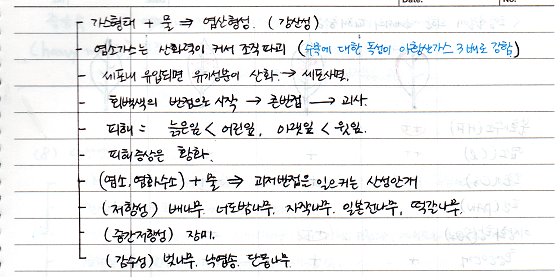 Date. No.
- 가스형태 + 물 ⇒ 염산형성. (강산성)
- 염소가스는 산화력이 커서 조직파괴 (수목에 대한 독성이 아황산가스 3배로 강함)
- 세포내 유입되면 유기성분이 산화 → 세포사멸.
- 회백색의 반점으로 시작 → 큰반점 → 괴사.
- 피해 = 늙은잎 < 어린잎, 아랫잎 < 윗잎.
- 피해증상은 황화.
- (염소, 염화수소) + 물 ⇒ 괴저반점을 일으키는 산성안개
- (저항성) 배나무. 너도밤나무. 자작나무. 일본전나무, 떡갈나무.
- (중간저항성) 장미.
- (감수성) 벚나무. 낙엽송. 단풍나무